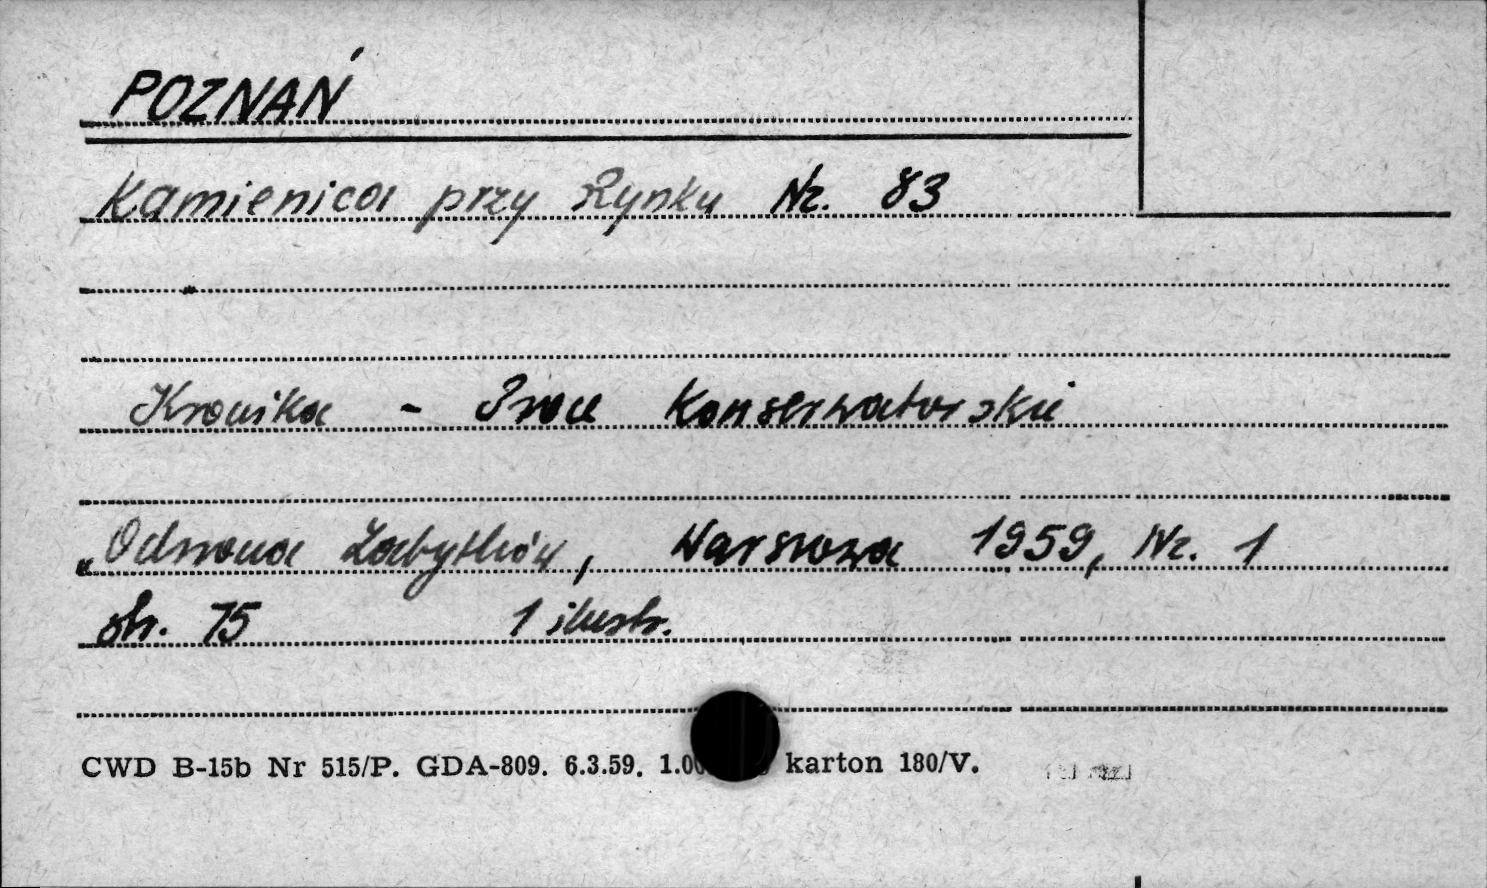 POZNAŃ
Kamienica przy Rynku Nr. 83
Kronika - Prace Konserwatorskie
„Ochrona Zabytków, Warszawa 1959, Nr. 1
str. 75 1 ilustr.
CWD B-15b Nr 515/P. GDA-809. 6.3.59. karton 180/V.